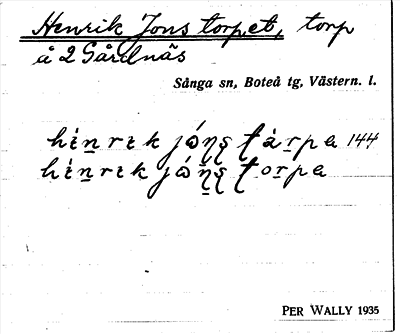 Henrik Jonstorpet, torp
å 2 Gårdnäs
Sånga sn, Boteå tg, Västern. l.
hènrɩk jóns tàrpa 144
hènrɩk jóns torpa
PER WALLY 1935